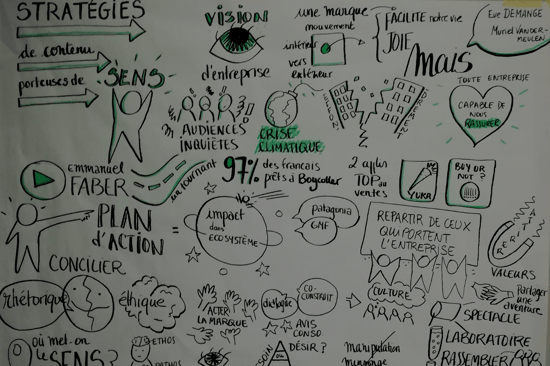 STRATÉGIES
de contenu
porteuses de
SENS
VISION
d'entreprise
une marque
mouvement
intérieur
vers
extérieur
FACILITE notre vie
JOIE
Eve DEMANGE
Muriel VANDER-
MEULEN
Mais
TOUTE ENTREPRISE
CAPABLE DE
NOUS
RASSURER
AUDIENCES
INQUIÈTES
CRISE
CLIMATIQUE
Emmanuel
FABER
un tournant
97%
des francais
prêts à Boycotter
2 applis
TOP des
ventes
YUKA
BUY OR
NOT?
PLAN
d'ACTION
=
impact
dans
ECOSYSTÈME
NO
patagonia
GMF
REPARTIR DE CEUX
QUI PORTENT
L'ENTREPRISE
VALEURS
CONCILIER
rhétorique
éthique
ACTER
LA MARQUE
dialogue
CO-
CONSTRUIT
CULTURE
Partager
une
aventure
SPECTACLE
AVIS
CONSO
où met-on
le SENS?
ETHOS
PATHOS
BESOIN
OU
DÉSIR?
manipulation
mensonge
LABORATOIRE
RASSEMBLER